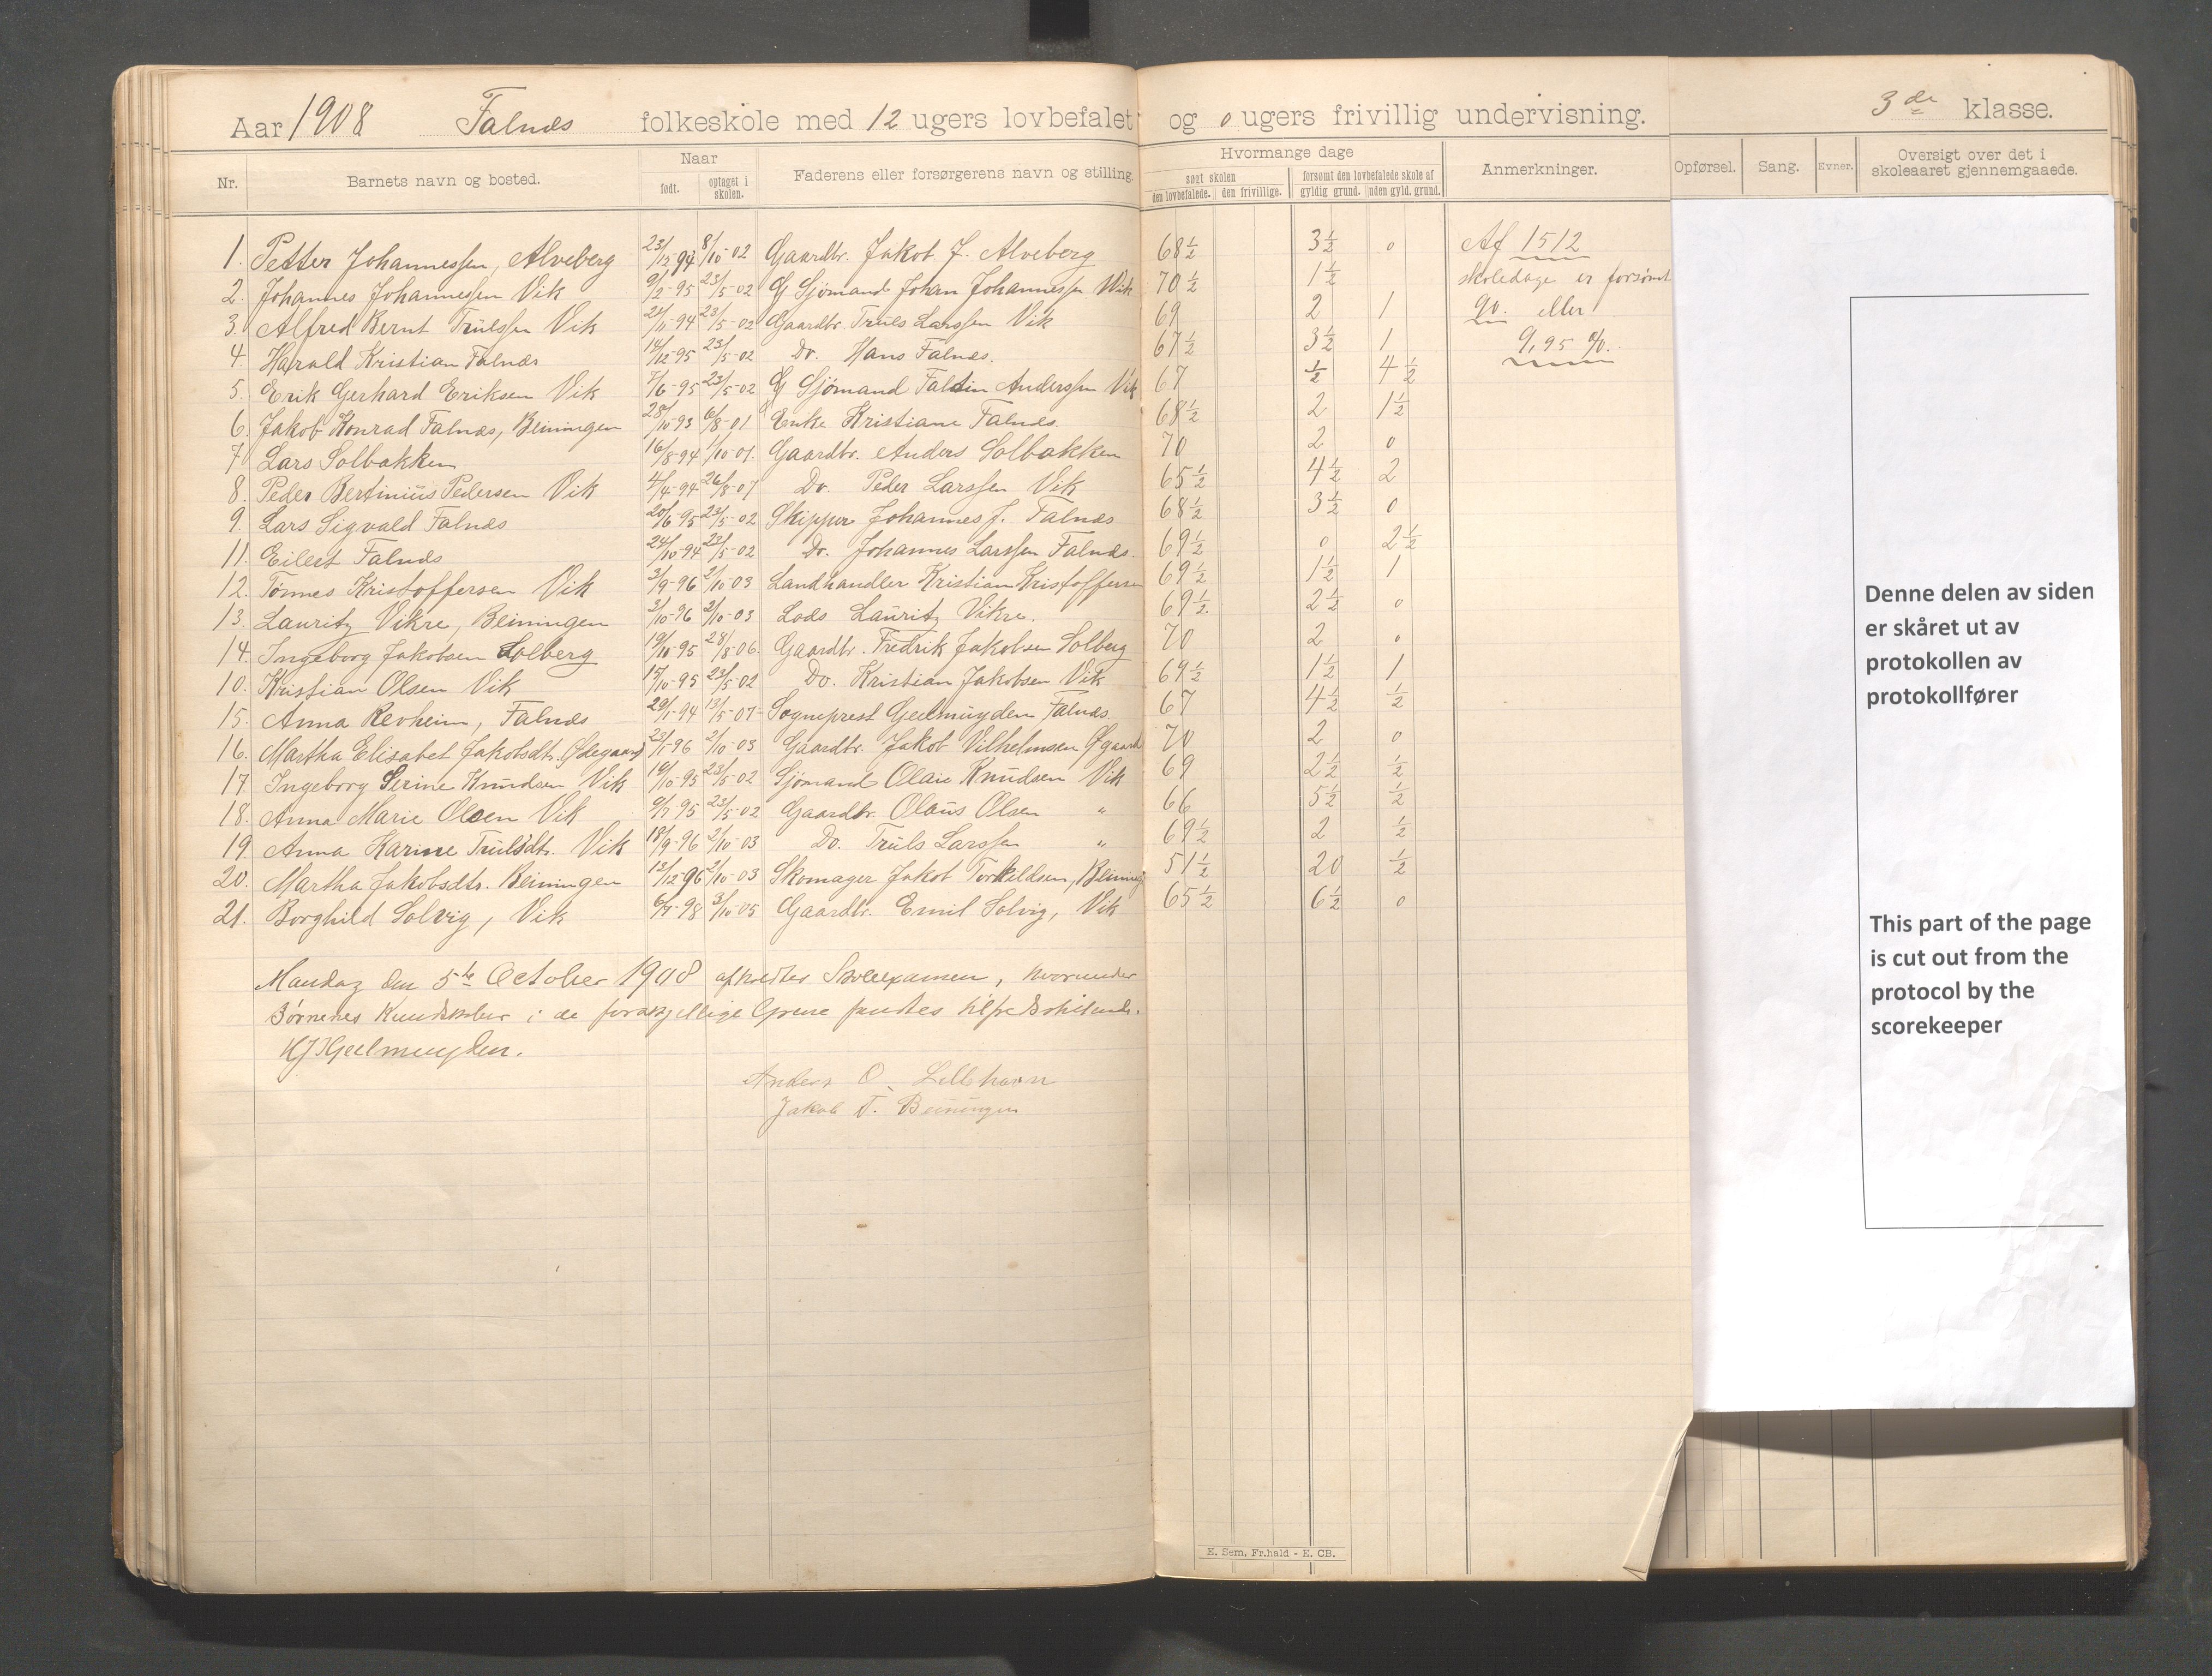 Aar 1908 Falnæs folkeskole med 12 ugers lovbefalet og 0 ugers frivillig undervisning. 3de klasse.
Nr. Barnets navn og bosted. Naar født. optaget i skolen. Faderens eller forsørgerens navn og stilling. Hvormange dage søgt skolen den lovbefalede. den frivillige. forsømt den lovbefalede skole af gyldig grund. uden gyld. grund. Anmerkninger. Opførsel. Sang. Evner. Oversigt over det i skoleaaret gjennemgaaede.
1. Petter Johannessen, Alveberg 23/12-94 8/10-02 Gaardbr. Jakob J. Alveberg 68½ 3½ 0 Af 1512
2. Johannes Johannessen Vik 9/2-95 23/5-02 G Sjømand Johan Johannessen Vik 70½ 1½ skoledage er forsømt
3. Alfred Bernt Trulssen Vik 21/11-94 23/5-02 Gaardbr. Truls Larssen Vik 69 2 1 90. eller
4. Harald Kristian Falnæs 14/12-95 23/5-02 Do. Hans Falnæs. 67½ 3½ 1 9,95 %.
5. Erik Gerhard Eriksen Vik 7/6-95 23/5-02 G Sjømand Faltin Anderssen Vik 67 ½ 4½
6. Jakob Konrad Falnæs, Beiningen 28/10-93 6/8-01 Enke Kristiane Falnæs. 68½ 2 1½
7. Lars Solbakken 16/8-94 1/10-01. Gaardbr. Anders Solbakken 70 2 0
8. Peder Bertinius Pedersen Vik 4/4-94 26/8-07 Do. Peder Larssen Vik 65½ 4½ 2
9. Lars Sigvald Falnæs 20/6-95 23/5-02 Skipper Johannes J. Falnæs 68½ 3½ 0
11. Eilert Falnæs 24/10-94 23/5-02 Do. Johannes Larssen Falnæs. 69½ 0 2½
12. Tønnes Kristoffersen Vik 3/9-96 2/10-03 Landhandler Kristian Kristoffersen 69½ 1½ 1
13. Lauritz Vikre, Beiningen 3/10-96 2/10-03 Lods Lauritz Vikre. 69½ 2½ 0
14. Ingeborg Jakobsen Solberg 19/10-95 28/8-06. Gaardbr. Fredrik Jakobsen Solberg 70 2 0
10. Kristian Olsen Vik 15/10-95 23/5-02 Do. Kristian Jakobsen Vik 69½ 1½ 1
15. Anna Revheim, Falnæs 29/1-94 13/5-07 Sogneprest Geelmuyden Falnæs. 67 4½ ½
16. Martha Elisabet Jakobsdtr. Ødegaard 23/1-96 2/10-03 Gaardbr. Jakob Vilhelmsen Øgaard 70 2 0
17. Ingeborg Serine Knudsen Vik 19/10-95 23/5-02 Sjømand Olai Knudsen Vik 69 2½ ½
18. Anna Marie Olsen Vik 9/7-95 23/5-02 Gaardbr. Olaus Olsen " 66 5½ ½
19. Anna Karine Trulsdtr. Vik 18/9-96 2/10-03 Do. Truls Larssen " 69½ 2 ½
20. Martha Jakobsdtr. Beiningen 13/12-96 2/10-03 Skomager Jakob Torkildsen, Beining 51½ 20 ½
21. Borghild Solvig, Vik 6/7-98 3/10-05 Gaardbr. Emil Solvig, Vik 65½ 6½ 0
Mandag den 5te October 1908 afholdtes Skoleexamen, hvorunder
Børnenes Kundskaber i de forskjellige Grene fandtes tilfredsstillende.
Geelmuyden.
Anders O. Lillehavn
Jakob T. Beiningen
E. Sem, Fr.hald - E. CB.
Denne delen av siden
er skåret ut av
protokollen av
protokollfører
This part of the page
is cut out from the
protocol by the
scorekeeper